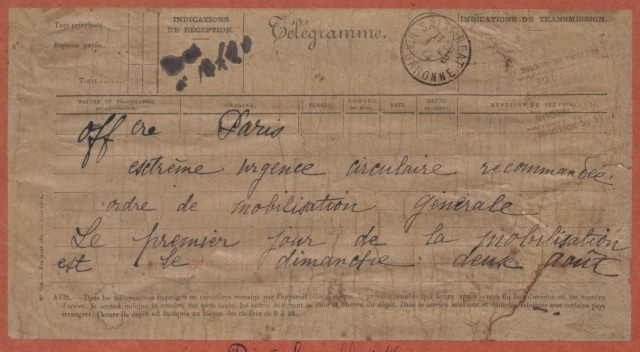 Taxe principale
Réponse payée
Total
INDICATIONS
DE RÉCEPTION.
Télégramme.
INDICATIONS DE TRANSMISSION.
ORIGINE. NUMÉRO. NOMBRE DE MOTS. DATE. MENTIONS DE SERVICE.
off cre Paris
extrême urgence circulaire recommandée.
ordre de mobilisation générale
Le premier jour de la mobilisation
est le dimanche deux août
AVIS. — Dans les télégrammes imprimés en caractères romains par l'appareil télégraphique, le premier nombre qui figure après le nom du lieu d'origine est un numéro
d'ordre, le second indique le nombre des mots taxés, les autres désignent la date et l'heure du dépôt. Dans le service intérieur et dans les relations avec certains pays
étrangers, l'heure du dépôt est indiquée au moyen des chiffres de 0 à 24.